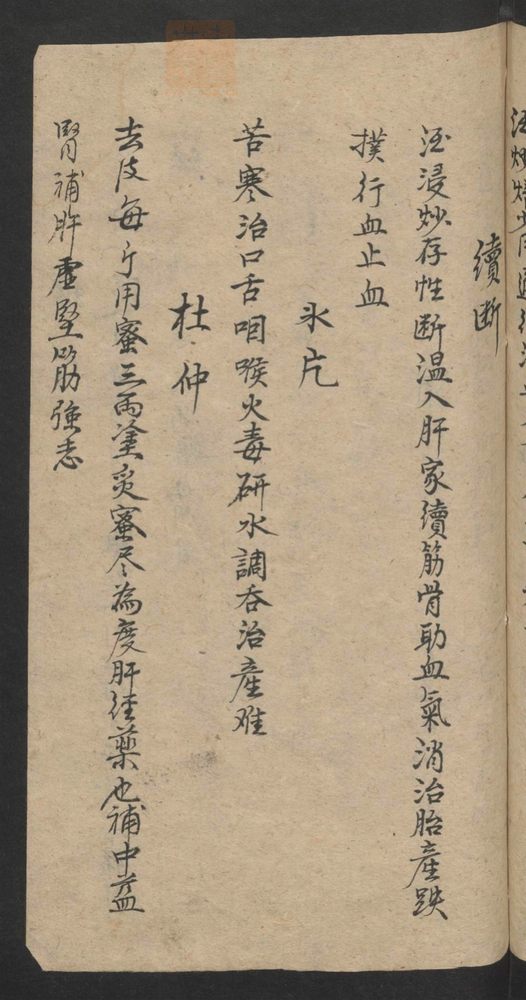 續断
酒浸炒存性断温入肝家續筋骨助血氣消治胎產跌
撲行血止血
氷片
苦寒治口舌咽喉火毒研水調呑治產难
杜仲
去皮每斤用蜜三両塗炙蜜尽為度肝経薬也補中益
腎補肝虚堅筋強志